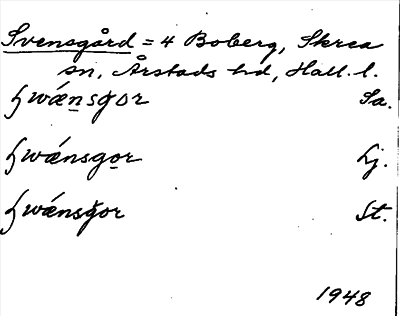 Svensgård = 4 Boberg, Skrea
sn, Årstads hd, Hall. l.
ʃwǽnsgor Sa.
ʃwǽnsgor Lj.
ʃwǽnsgor St.
1948